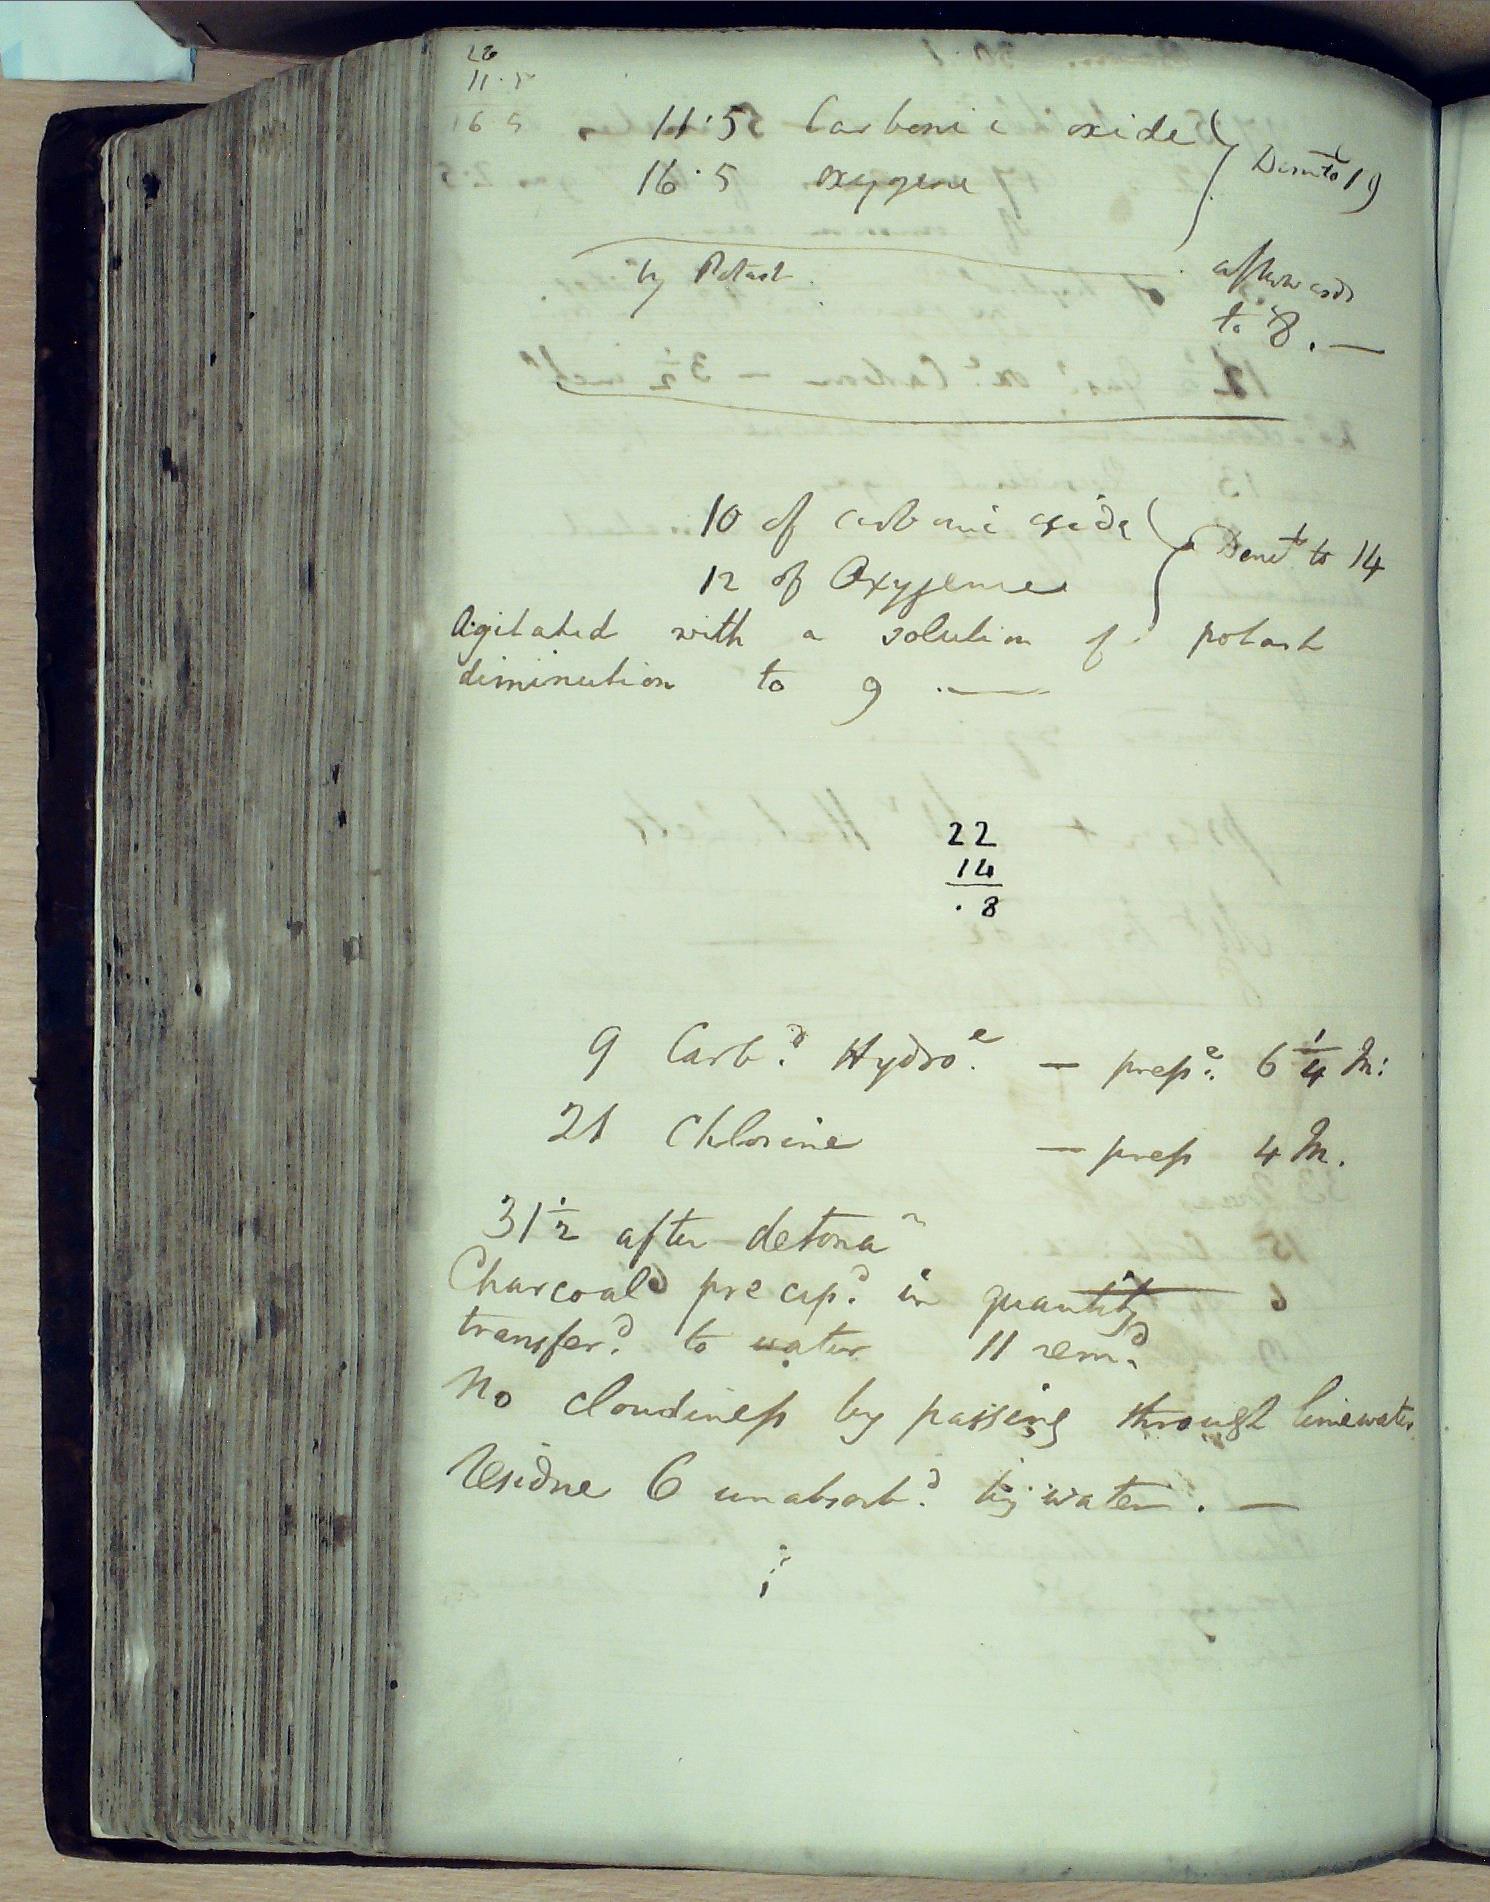 28
11.5
16 5
11.5 Carbonic oxide
16.5 oxygene
Dimn to 19
by Potash
afterwards
to 8. —
10 of carbonic oxide
12 of Oxygene
Dimt to 14
Agitated with a solution of potash
diminution to 9 . —
22
14
. 8
9 Carb.d Hydro.e — prep.e 6 1/4 M:
21 Chlorine — prep 4 M.
31 1/2 after detona n
Charcoal precip.d in quantity
transfer.d to water 11 rem.d
No cloudiness by passing through limewater
Residue 6 unabsorb.d by water . —